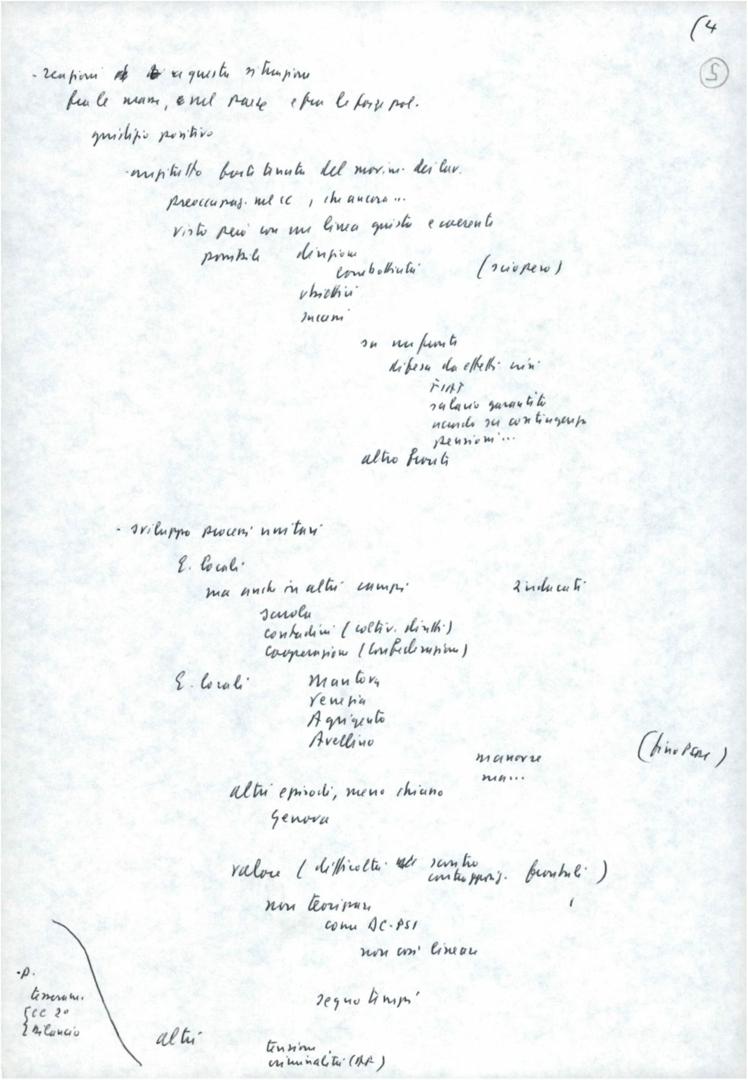 (4
5
- reazioni a questa situazione
fra le masse, e nel paese e fra le forze pol.
giudizio positivo
- anzitutto forte tenuta del movim. dei lav.
preoccupaz. nel CC, che ancora...
visto però con una linea giusta e coerente
possibile direzione
combattività (sciopero)
obiettivi
successi
su un fronte
difesa da effetti crisi
FIAT
salario garantito
accordo su contingenza
pensioni...
altro fronte
- sviluppo processi unitari
E. locali
ma anche in altri campi sindacati
scuola
contadini (coltiv. diretti)
cooperazione (confederazioni)
E. locali Mantova
Venezia
Agrigento
Avellino
manovre
ma...
altri episodi, meno chiaro
Genova
valore (difficoltà scontro
contrappos. frontali)
non teorizzare
come DC-PSI
non così lineare
segno tempi
-p.
tesseram.
CC 20
Bilancio
altri
tensione
criminalità